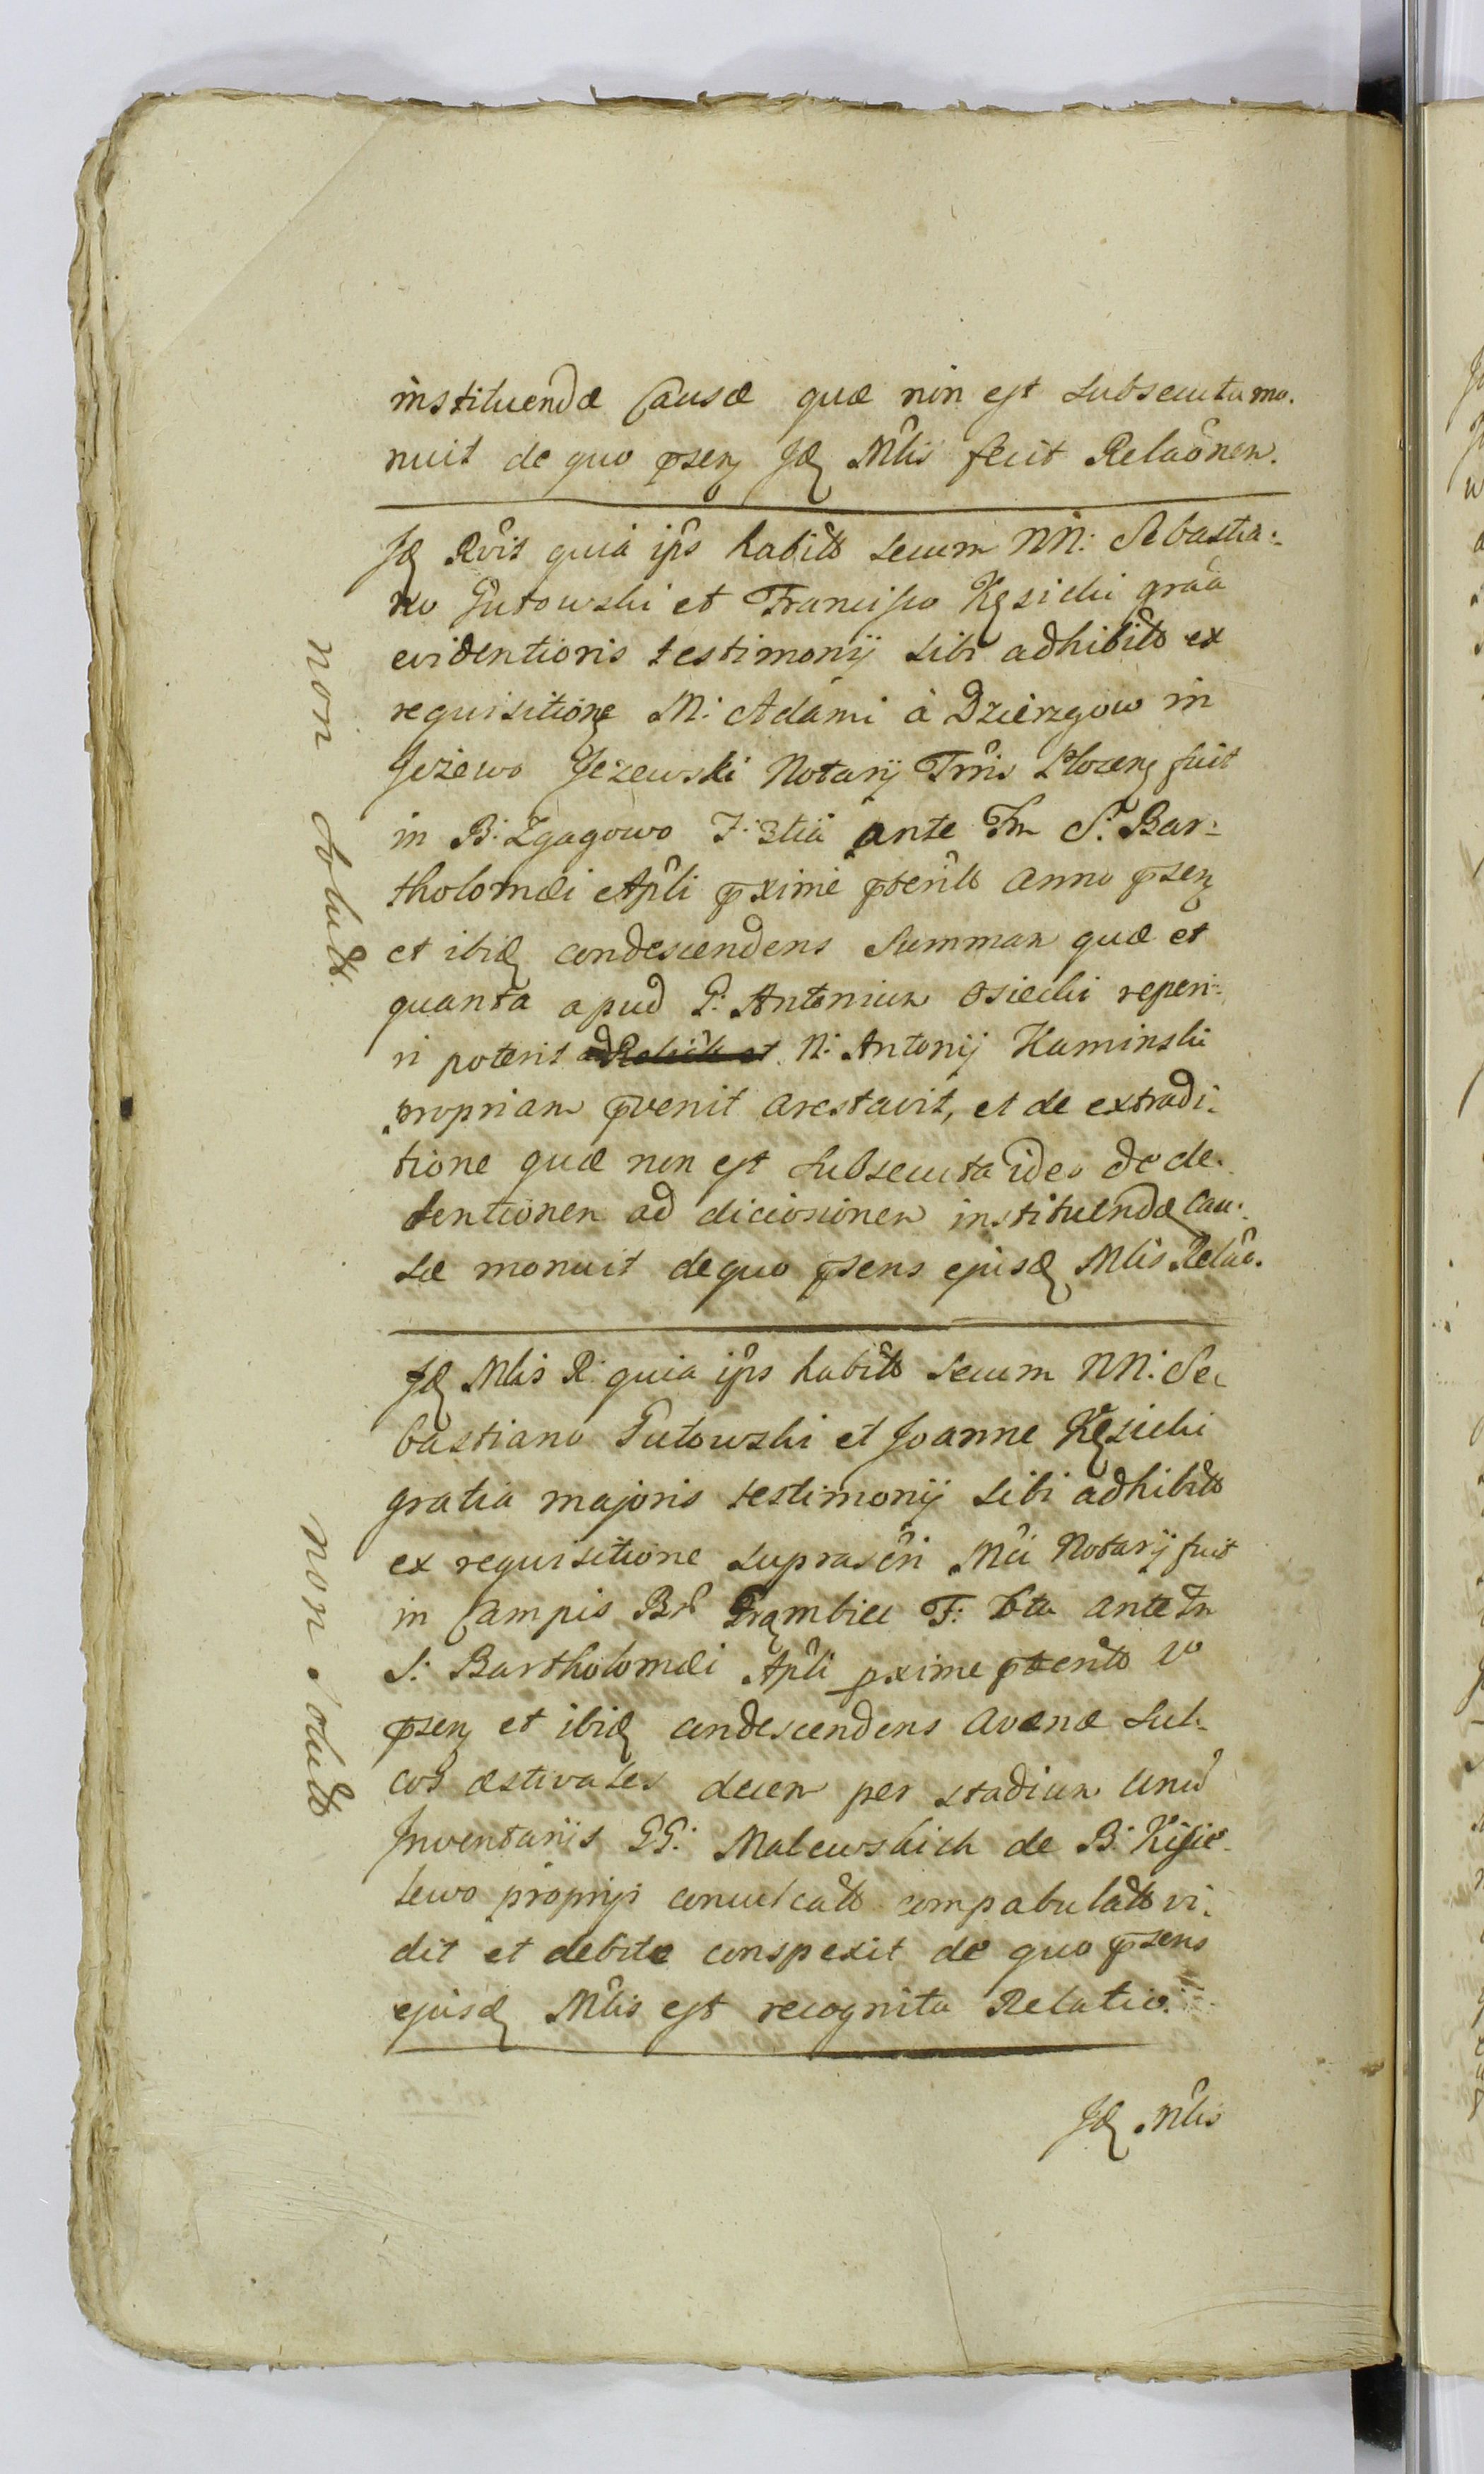 instituendæ Causæ quæ non est subsecuta mo-
nuit de quo pseñ Jd Mlis fecit Relaõnem.
Jd Rvis quia ips habitt secum NN: Sebastia:
no Gutowski et Francisco Kęsicki graã
evidentioris testimonij sibi adhibitt ex
requisitione M: Adami à Dzierzgow in
Jeżewo Jeżewski Notarij Trris Plocens fuit
in B: Zgagowo F: 3tiã ante Fm S: Bar:
tholomæi Apli pxime pterito anno pseñ
et ibid condescendens Summam quæ et
quanta apud G: Antonium Osiecki reperi:
ri poterit ad N: Antonij Kaminski
propriam pvenit arestavit, et de extradi:
tione quæ non est subsecuta ideo de de:
tentionem ad diciosionem instituendæ Cau:
sæ monuit de quo psens ejusd Mlis Relaõ.
Jd Mlis R: quia ips habitt secum NN: Se:
bastiano Gutowski et Joanne Kęsicki
gratia majoris testimonij sibi adhibitt
ex requisitione suprascri Mci Notarij fuit
in Campis Br Grąmbiec F: 6ta ante Fm
S: Bartholomæi Apli pxime pteritt
pseñ et ibid condescendens avenæ sul:
cos æstivales decem per stadium unũ
Inventariis GG: Malewskich de B: Kisie:
lewo proprijs conculcatt compabulatt vi:
dit et debite conspexit de quo psens
ejusd Mlis est recognita Relatio.
Jd Mlis
non solutt.
non solutt